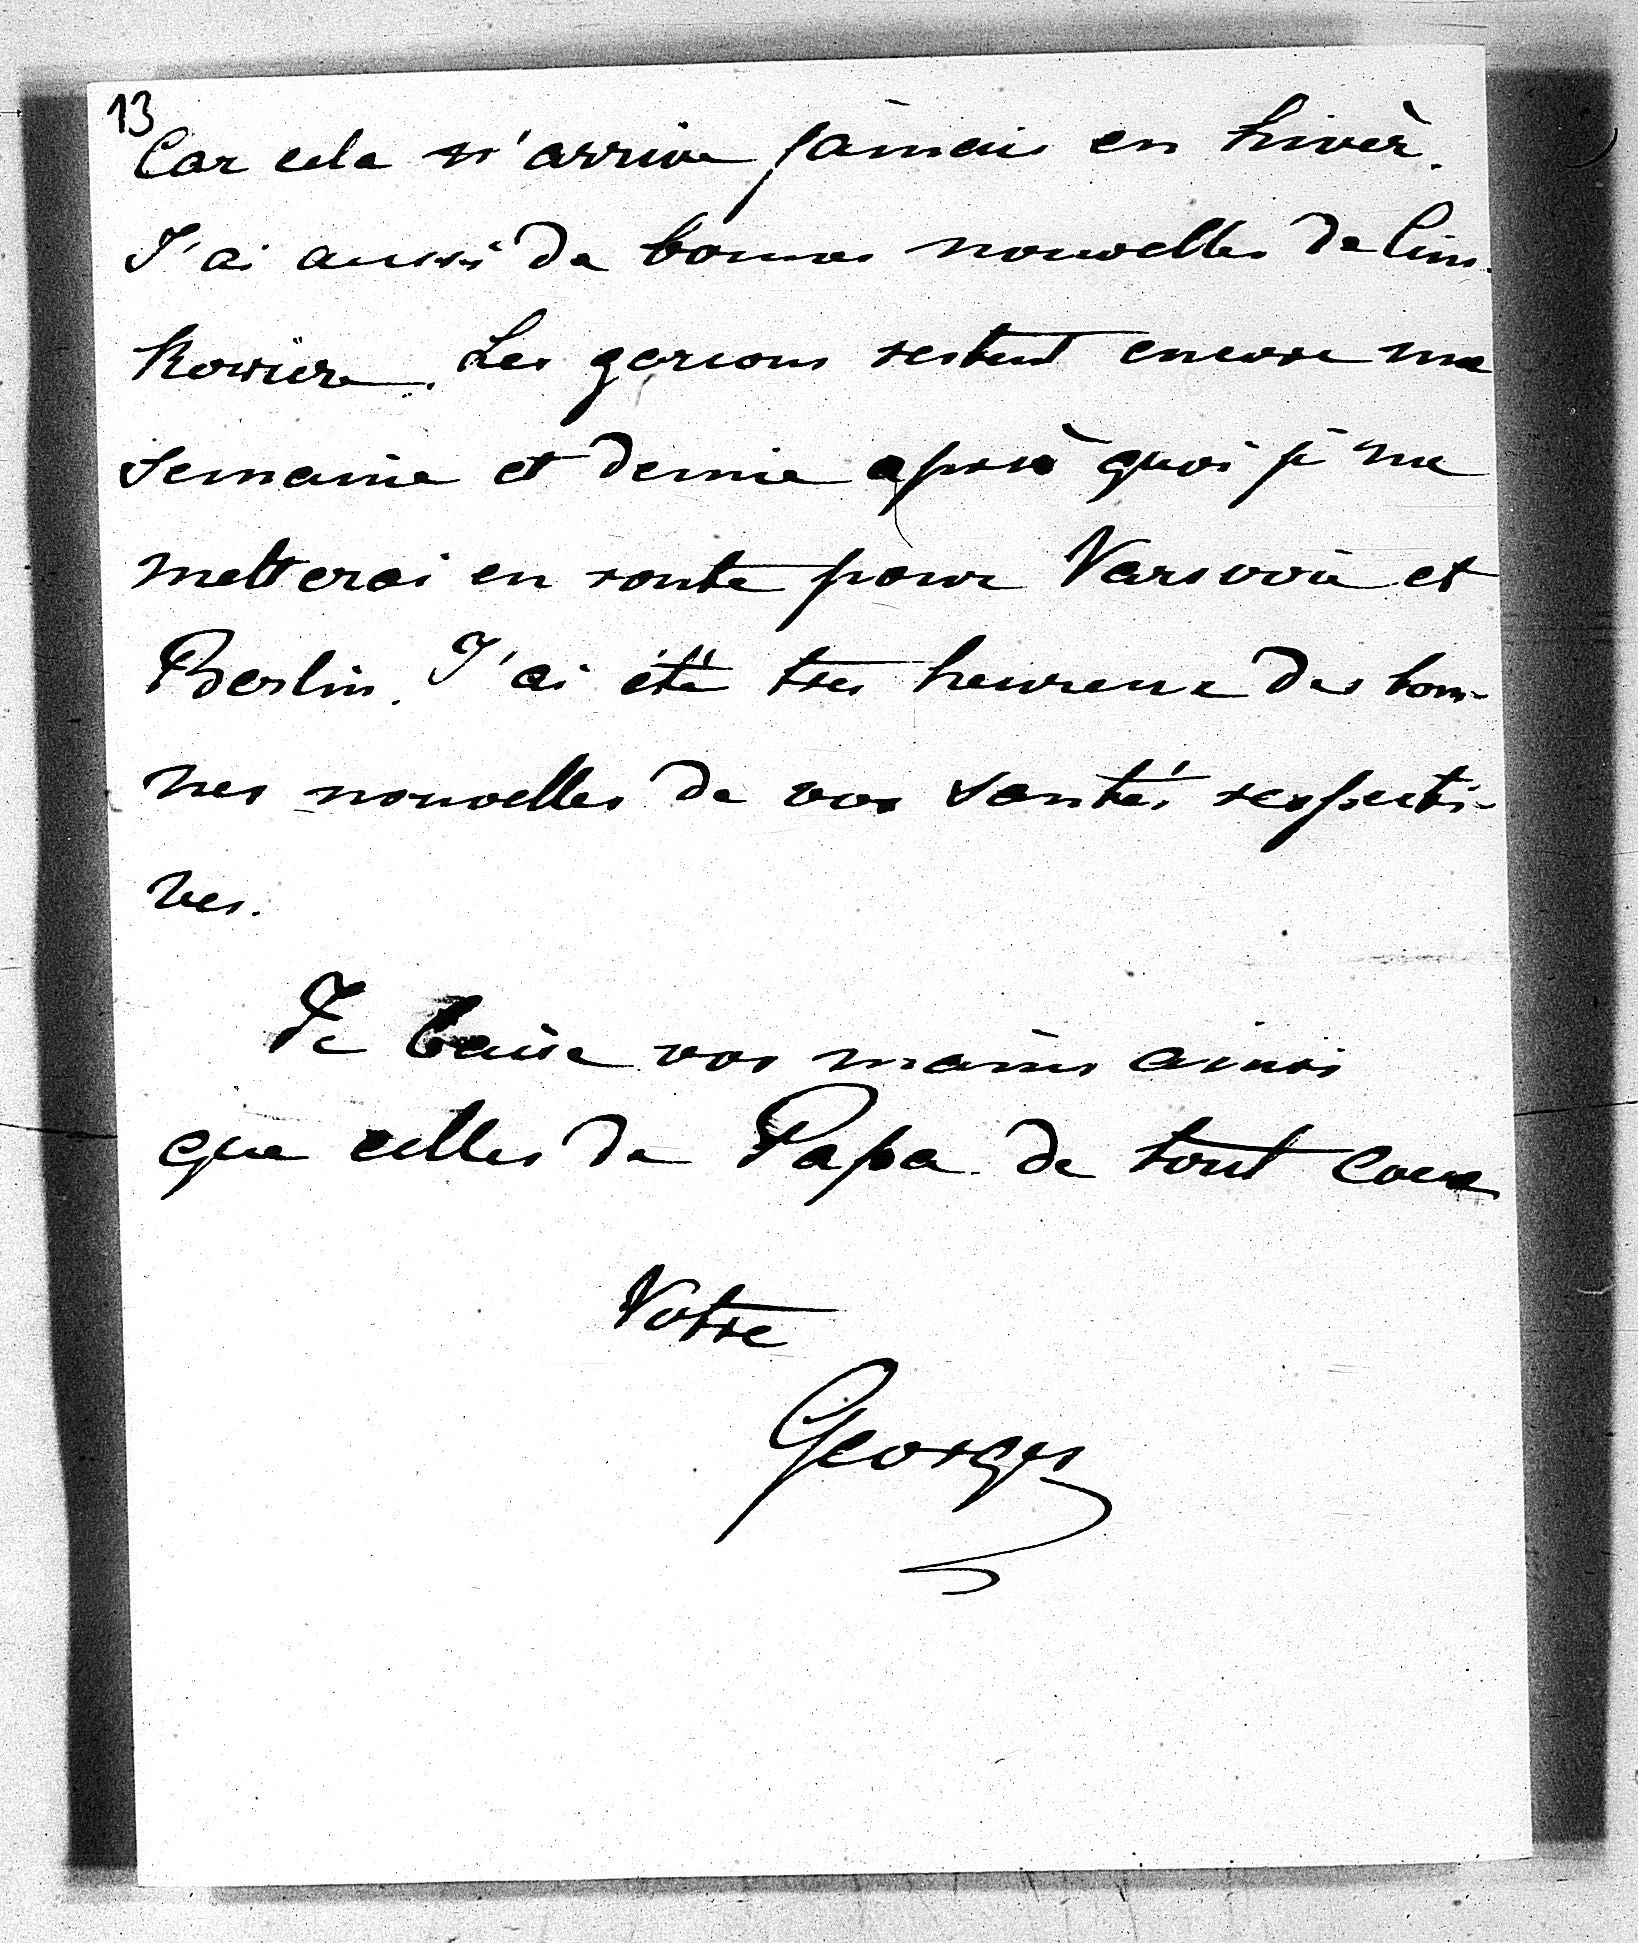 13
Car cela n'arrive jamais en hivèr.
J'ai aussi de bonnes nouvelles de Cim-
kowicze. Les garcons restent encore une
semaine et demie après quoi je me
metterai en route pour Varsovie et
Berlin. J'ai été tres heureux des bon-
nes nouvelles de vos santés respecti-
ves.
Je baise vos mains ainsi
que celles de Papa de tout coeur
Votre
Georges